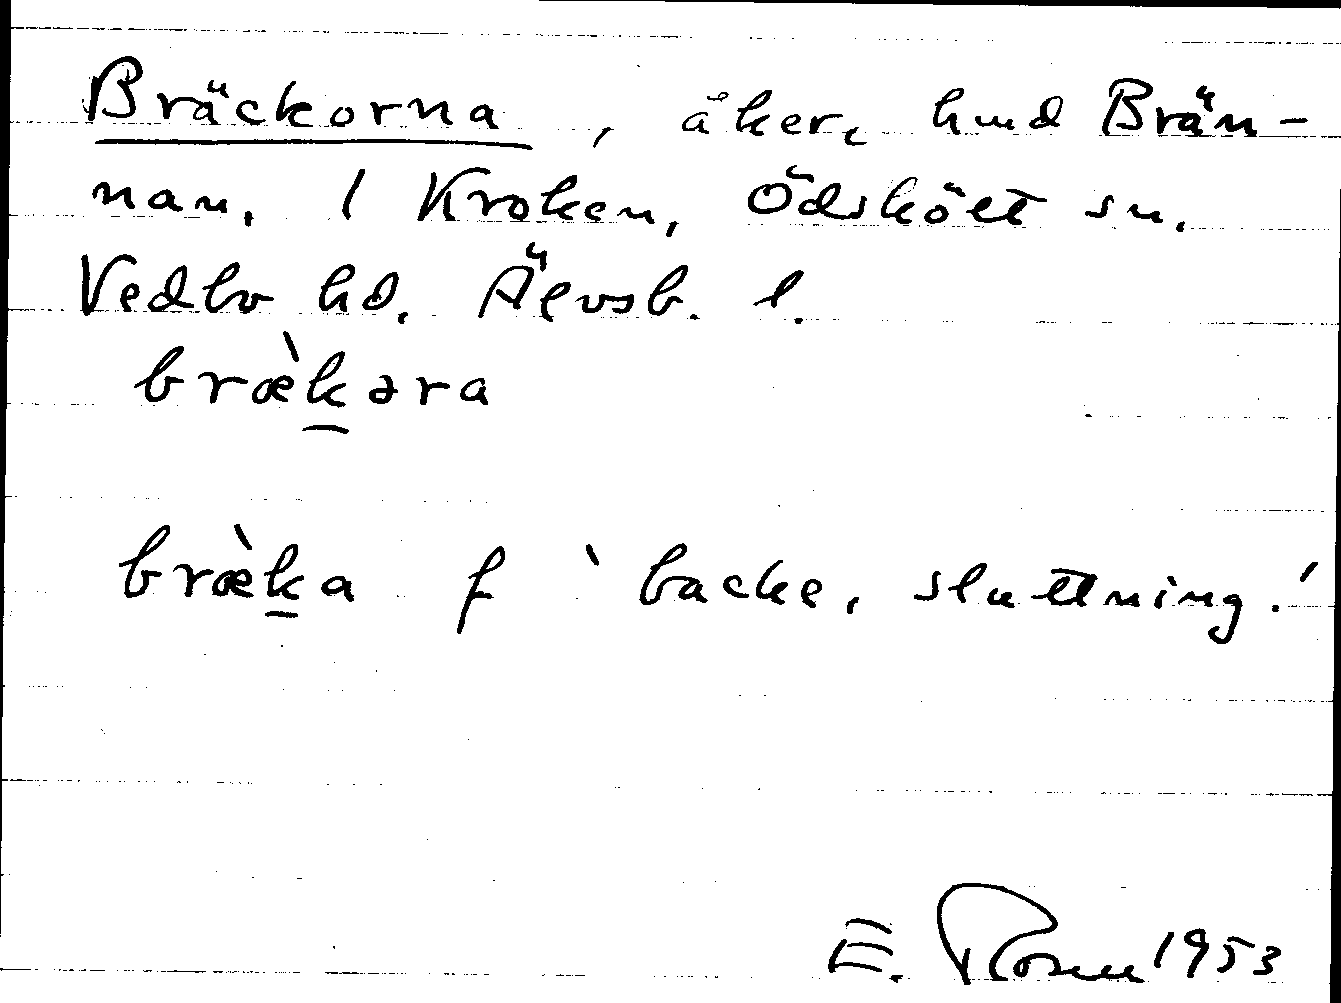 Bräckorna, åker, hmd Brän-
nan, 1 Kroken, Ödskölt sn,
Vedbo hd, Älvsb. l.
bræ̀k̲əra
bræ̀k̲a f ‵backe, sluttning.′
E. Rosen 1953